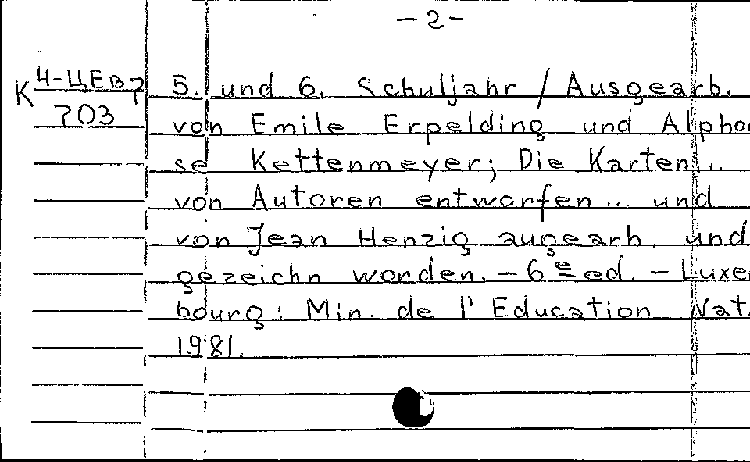 - 2 -
К Ч-ЦЕв7
703
5. und 6. Schuljahr / Ausgearb.
von Emile Erpelding und Alphon
se Kettenmeyer; Die Karten..
von Autoren entworfen.. und
von Jean Henzig augearb. und
gezeichn worden. - 6e ed. - Luxem
bourg: Min. de l'Education Nat.
1981.